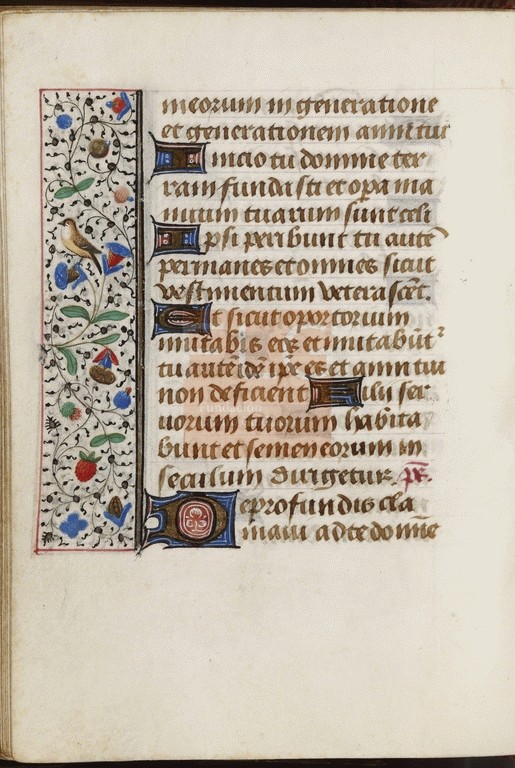 meorum in generatione
et generationem anni tui
Inicio tu domine ter
ram fundasti et opa ma
nuum tuarum sunt celi
Ipsi peribunt tu autē
permanes et omnes sicut
vestimentum veterascēt.
Et sicut oportorium
mutabis eos et mutabūt²
tu autē idē ipē es et anni tui
non deficient Filii ser
uorum tuorum habita
bunt et semen eorum in
seculum dirigetur. ps.
De profundis cla
maui ad te domine
Fundación